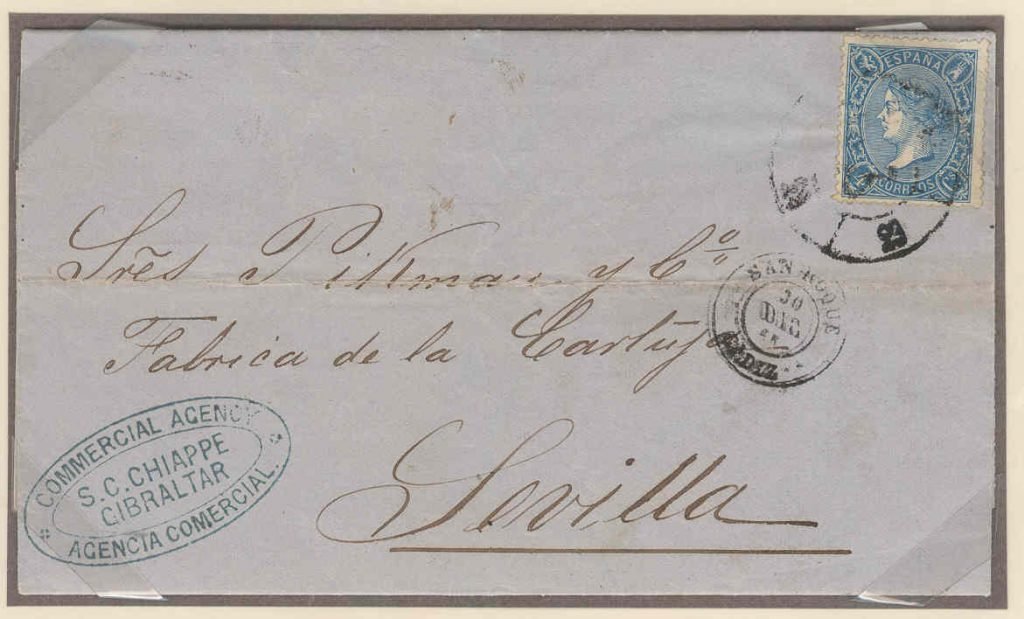 ESPAÑA
CORREOS
Srēs Pittman y Cª
Fabrica de la Cartuja
Sevilla
SAN ROQUE
30
DIC
CADIZ
COMMERCIAL AGENCY
S.C. CHIAPPE
GIBRALTAR
AGENCIA COMERCIAL.